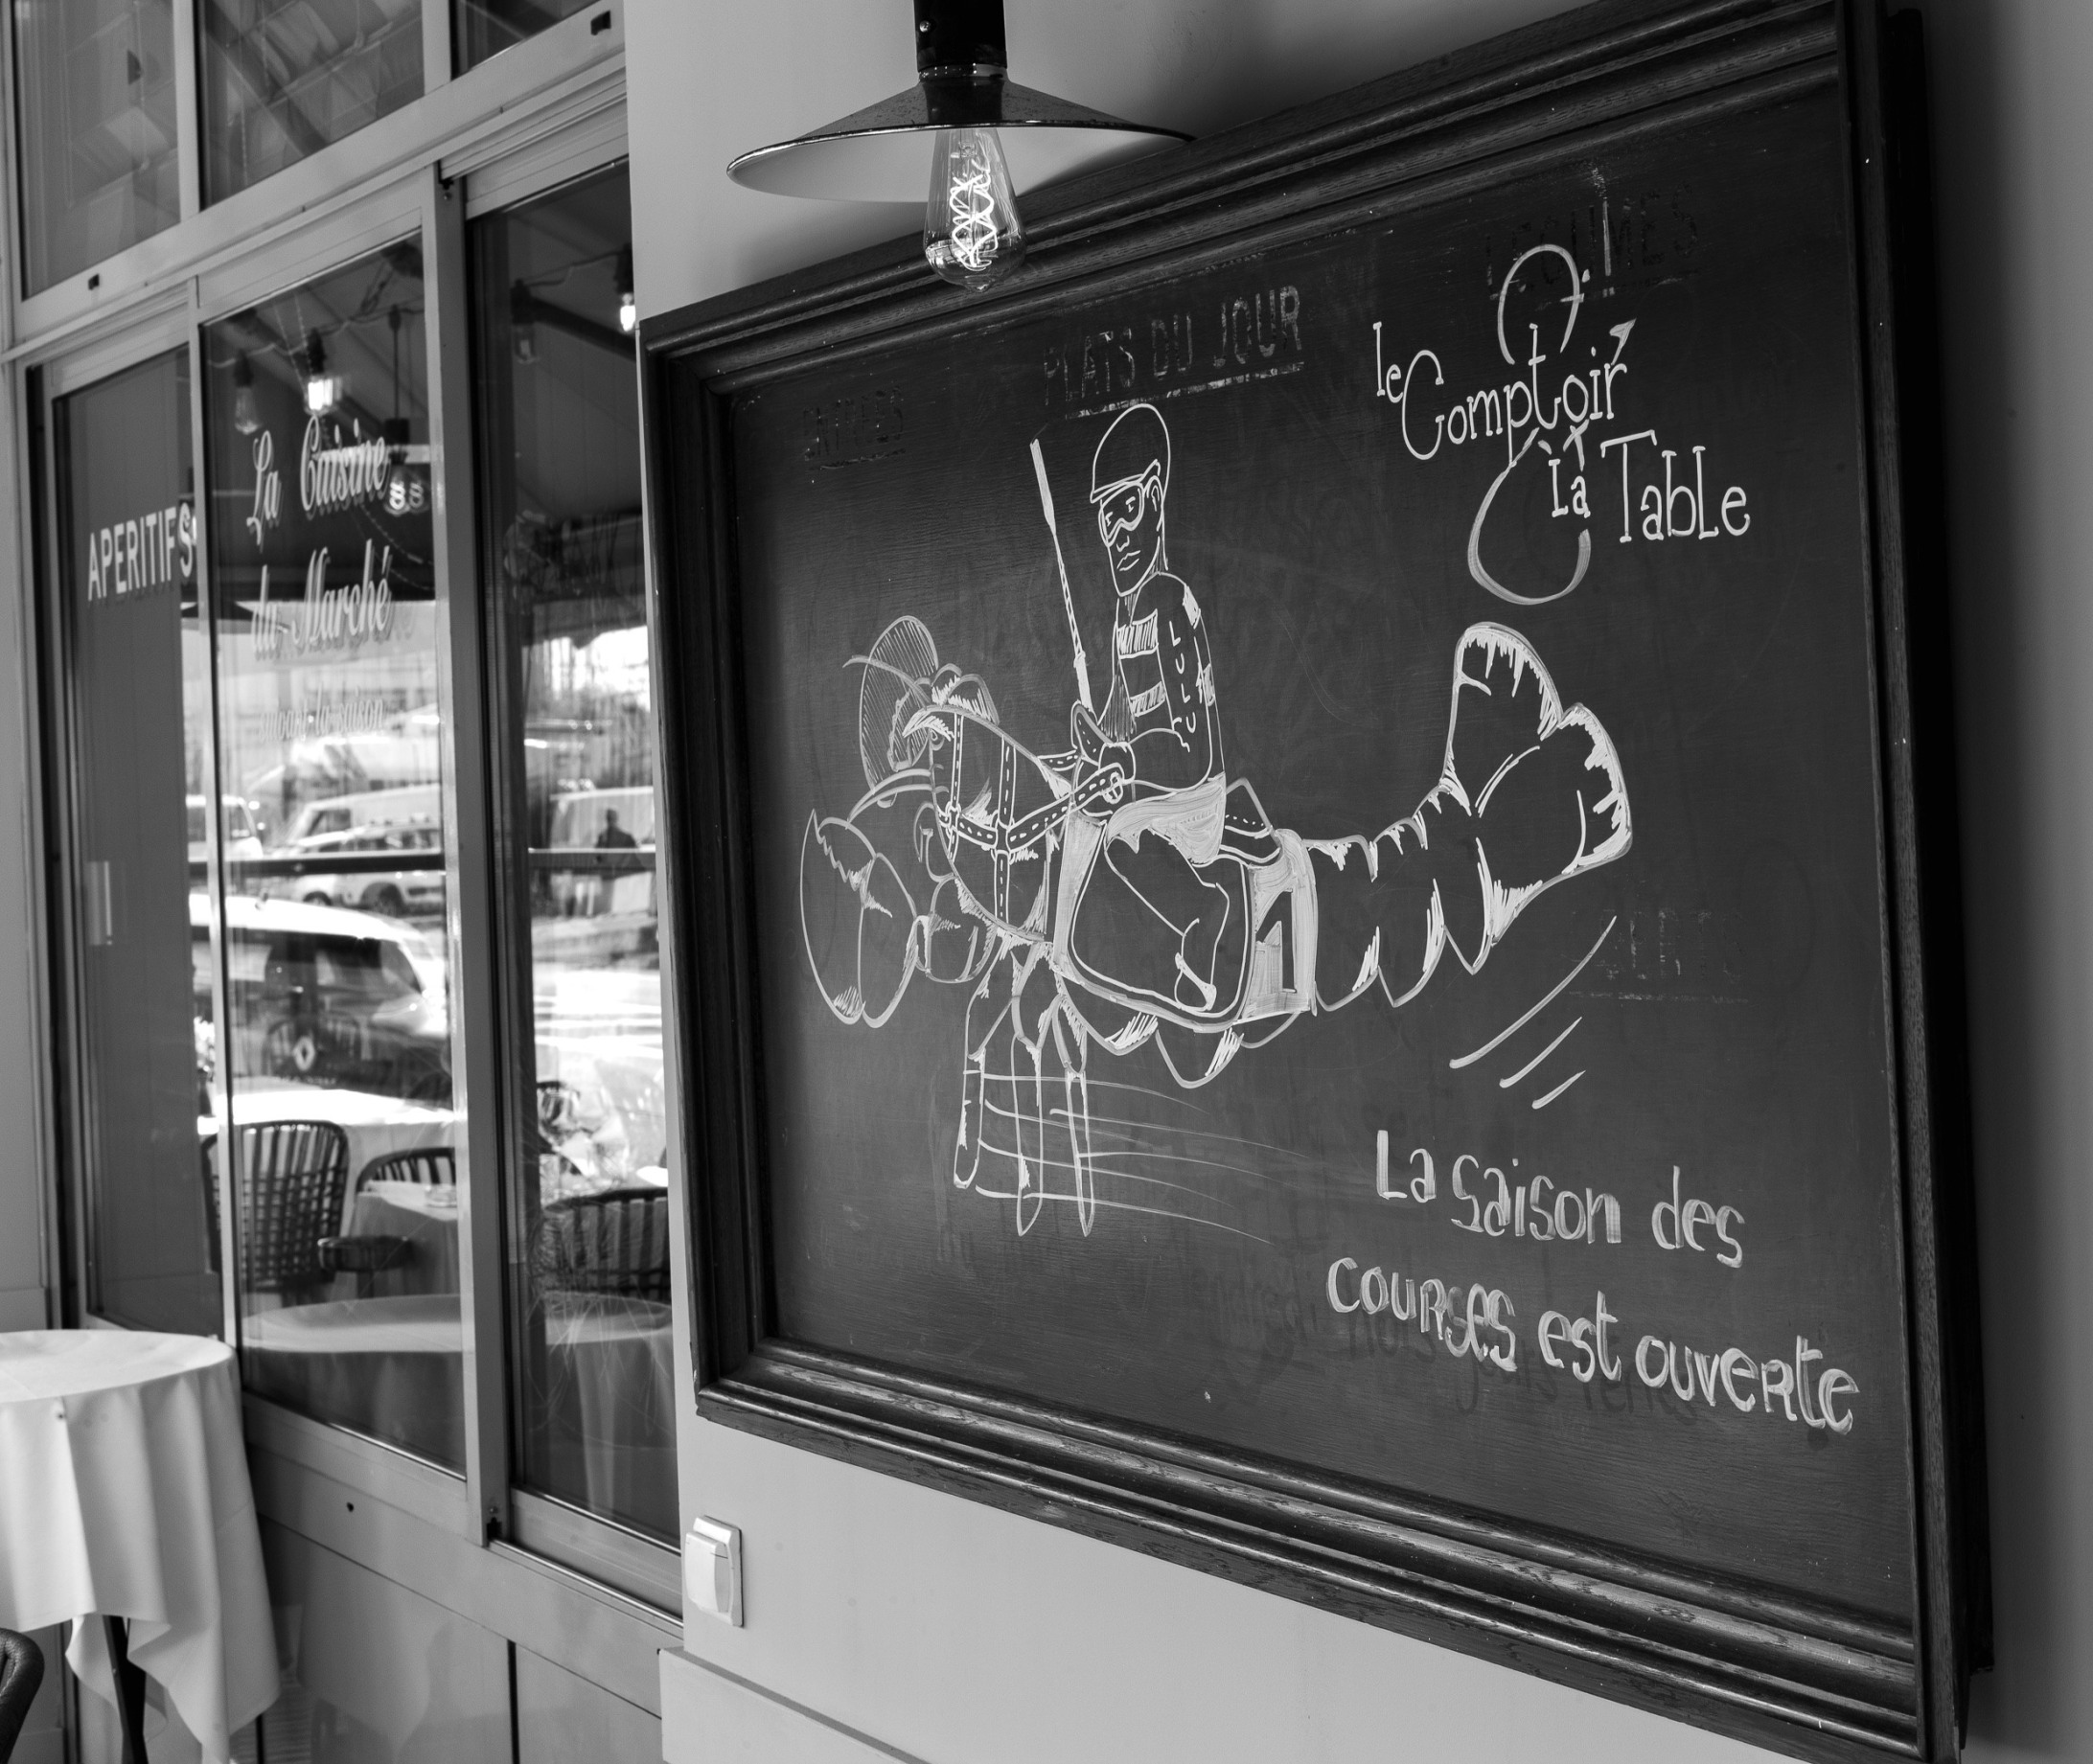 APERITIFS
La Cuisine
du Marché
suivant la saison
ENTREES
PLATS DU JOUR
LEGUMES
le Comptoir
à
La Table
LULU
1
La saison des
courses est ouverte